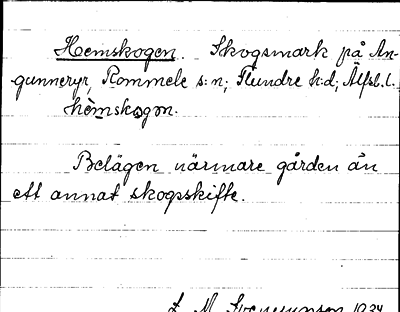 Hemskogen. Skogsmark på An-
gunneryr, Rommele s:n; Flundre h:d, Älfsb.l.
hèmskogen.
Belägen närmare gården än
ett annat skogsskifte.
1934